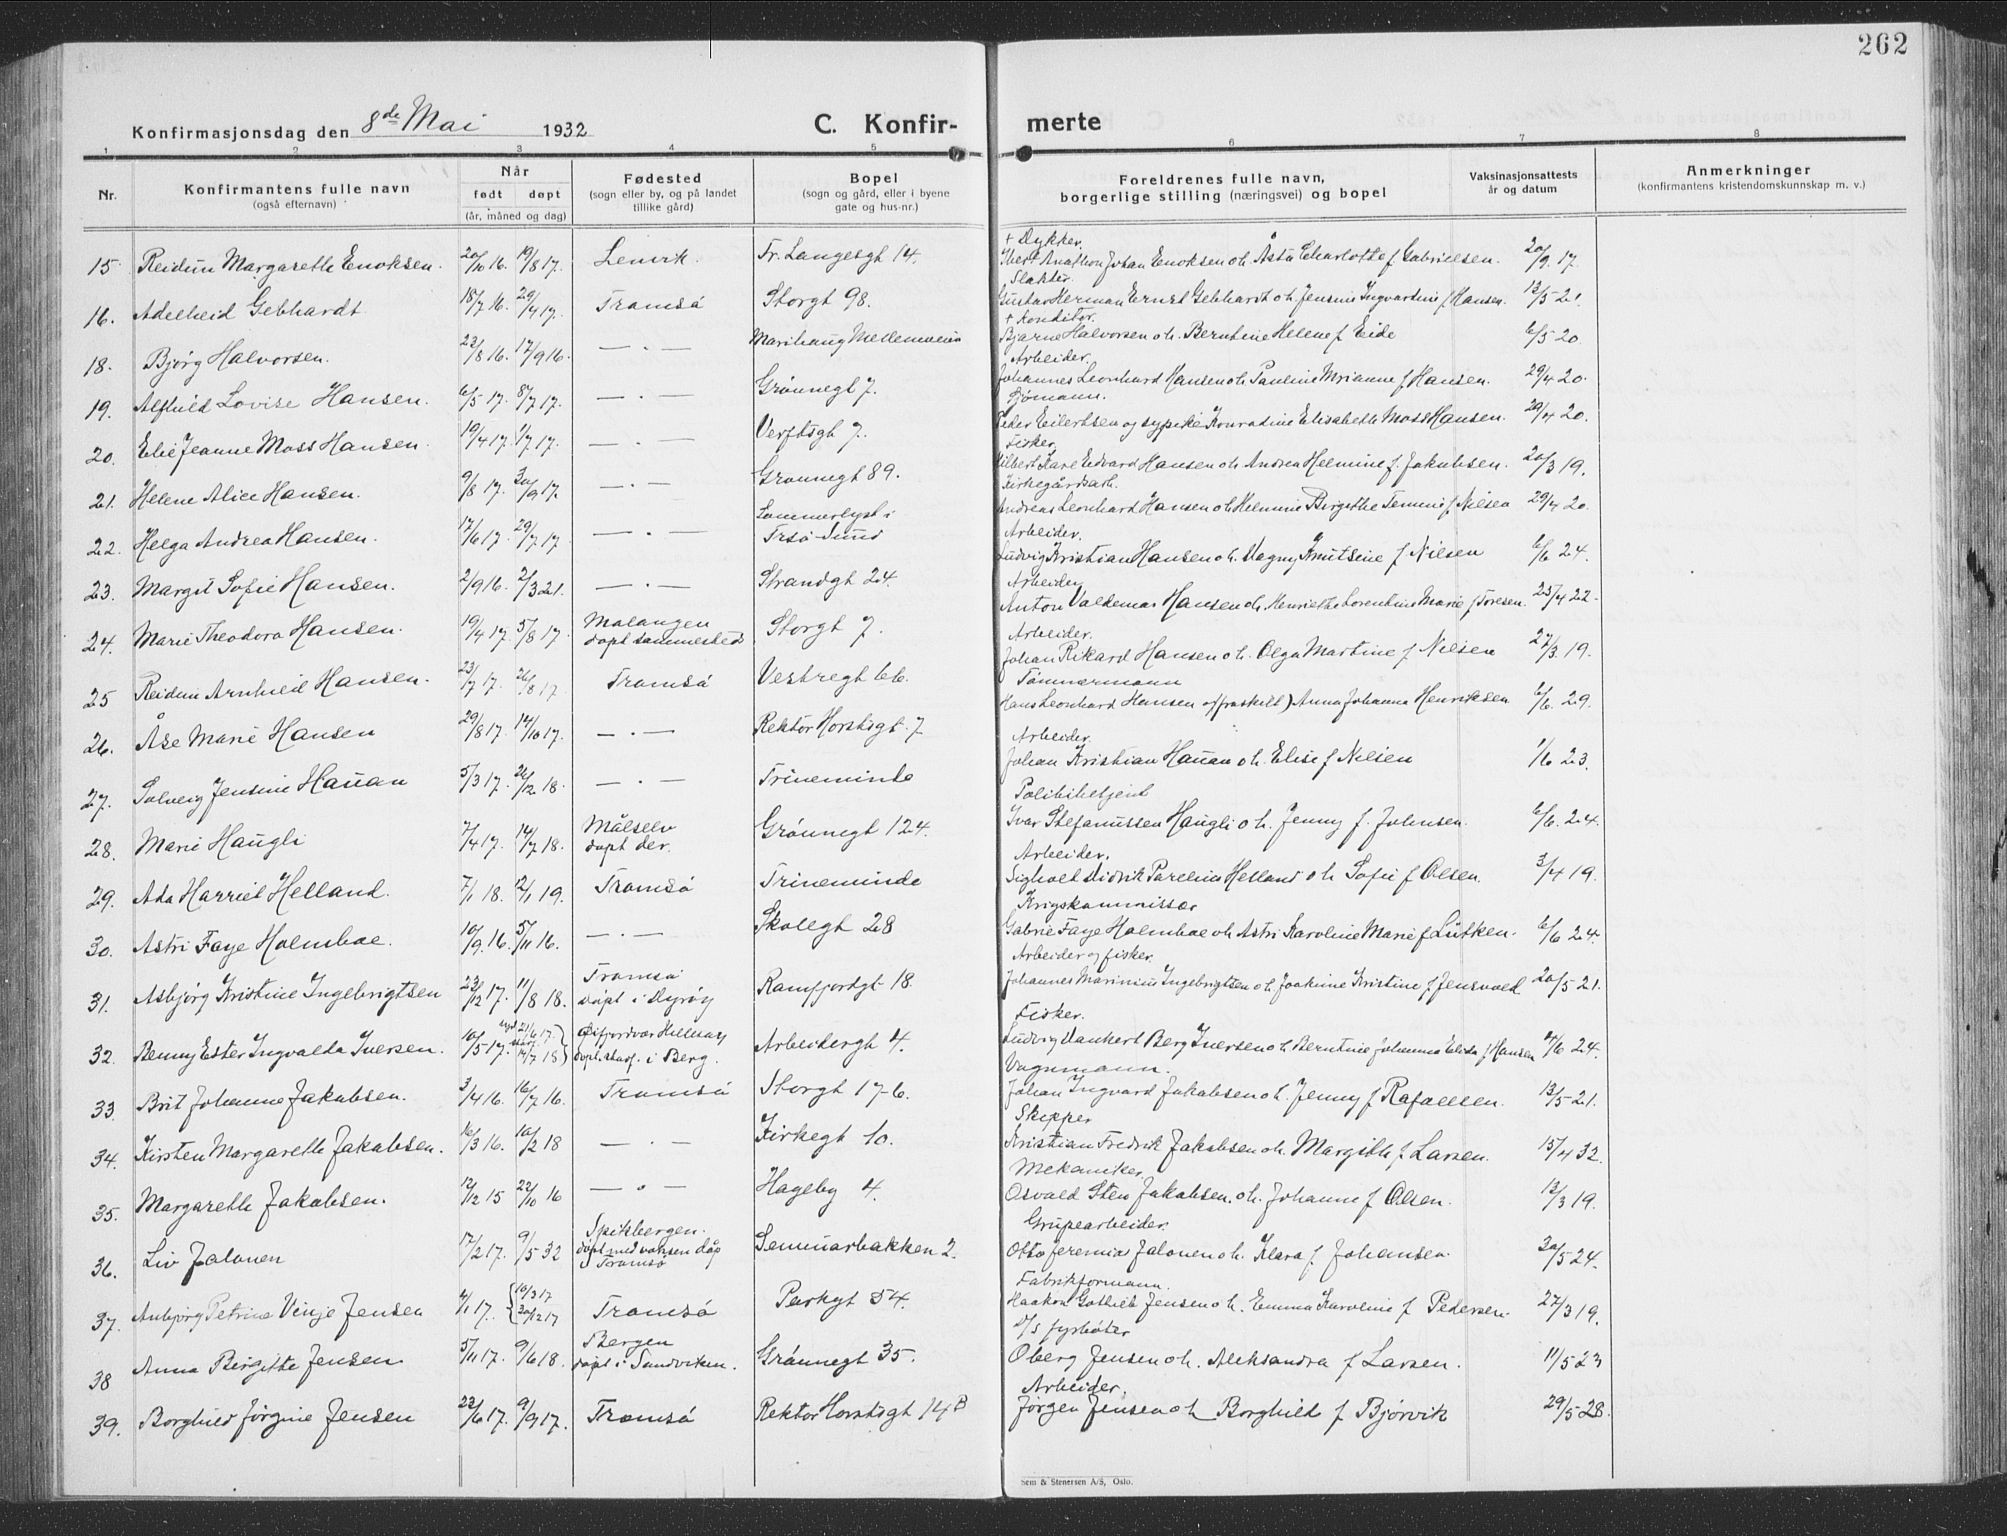 262
Konfirmasjonsdag den 8de Mai 1932
C. Konfir-
merte
1 2 3 4 5 6 7 8
Nr.
Konfirmantens fulle navn
(også efternavn)
Når
født døpt
(år, måned og dag)
Fødested
(sogn eller by, og på landet
tillike gård)
Bopel
(sogn og gård, eller i byene
gate og hus-nr.)
Foreldrenes fulle navn,
borgerlige stilling (næringsvei) og bopel
Vaksinasjonsattests
år og datum
Anmerkninger
(konfirmantens kristendomskunnskap m. v.)
+ Dykker.
15. Reidun Margarethe Enoksen. 20/10 16. 19/8 17. Lenvik. Fr. Langesgt 14. Johan Enoksen o h. Åsta Charlotte f Gabrielsen. 20/9. 17.
Slakter.
16. Adelheid Gebhardt 18/7 16. 29/4 17. Tromsø Storgt 98. Gustav Herman Ernst Gebhardt o h. Jensine Ingvardine f Hansen. 13/5 21.
+ Konditor.
18. Bjørg Halvorsen. 23/8 16. 17/9 16. — . — Marihaug Mellemveien Bjarne Halvorsen o h. Berntine Helene f Eide 6/5 20.
Arbeider.
19. Alfhild Lovise Hansen. 6/5 17. 8/7 17. — . — Grønnegt 7. Johannes Leonhard Hansen o h Pauline Mrianne f Hansen. 29/4 20.
Sjømann.
20. Elie Jeanne Moss Hansen. 19/4 17. 1/7 17. — . — Verftsgt 7. Peder Eilertsen og sypike Konradine Elisabeth Moss Hansen. 29/4 20.
Fisker.
21. Helene Alice Hansen. 9/8 17. 30/9 17. — . — Grønnegt 89. Kåre Edvard Hansen o h Andrea Helmine f. Jakobsen. 20/3 19.
Kirkegårdsarb.
22. Helga Andrea Hansen. 17/6 17. 29/7 17. — . — Sommerlyst i
Trsø Sund Andreas Leonhard Hansen o h Helmine Birgithe Temine f Nilsen 29/4 20.
Arbeider.
23. Margit Sofie Hansen. 2/9 16. 2/3 21. — . — Strandgt 24. Ludvig Kristian Hansen o h. Dagny Knutsine f Nilsen 6/6 24.
Arbeider
24. Marie Theodora Hansen. 19/4 17. 5/8 17. Malangen
døpt sammesteds Storgt 7. Anton Valdemar Hansen o h. Henriette Lorentine Marie f Toresen. 25/4 22.
Arbeider.
25 Reidun Arnhild Hansen. 23/7 17. 26/8 17. Tromsø Vestregt 66. Johan Rikard Hansen o h. Olga Martine f Nielsen 27/3. 19.
Tømmermann
26. Åse Marie Hansen 29/8 17. 14/10 17. — . — Rektor Horstsgt. 7 Hans Leonhard Hansen og (fraskilt) Anna Johanna Henriksen 6/6. 29.
Arbeider.
27. Solveig Jensine Hauan 5/3 17. 26/12 18. — . — Trineminde Johan Kristian Hauan o h. Elise f Nilsen 1/6 23.
Politibetjent
28. Marie Haugli 7/4 17. 14/7 18. Målselv
døpt der. Grønnegt 124. Ivar Stefanussen Haugli o h. Jenny f. Johnsen. 6/6. 24.
Arbeider.
29. Ada Harriet Helland. 7/1 18. 12/1 19. Tromsø Trineminde Sigholt Didrik Parelius Helland o h Sofie f Olsen. 3/4 19.
Krigskommissær
30. Astri Faye Holmboe. 10/9. 16. 5/11 16. — . — Skolegt 28 Gabriel Faye Holmboe o h Astri Karoline Marie f Lütken. 6/6 24.
Arbeider og fisker.
31. Asbjørg Kristine Ingebrigtsen 23/12 17. 11/8 18. Tromsø
døpt i Dyrøy Ramfjordgt 18. Johannes Marinius Ingebrigtsen o h. Joakime Kristine f Jensvold 20/5 21.
Fisker.
32. Renny Ester Ingvalda Iversen. 10/5 17. 21/6 17. 14/7 18 Øifjordvær Hillesøy
døpt stadf. i Berg. Arbeidergt 4. Ludvig Dankert Berg Iversen o h Berntine Johanna Elida f Hansen 4/6 24.
Vognmann.
33 Brit Johanne Jakobsen. 3/4 16. 16/7 16. Tromsø Storgt 176. Johan Ingvard Jakobsen o h. Jenny f Rafaelsen. 13/5 21.
Skipper
34. Kirsten Margarethe Jakobsen. 16/3 16. 10/2 18 — . — Kirkegt 10. Kristian Fredrik Jakobsen o h. Margith f Larsen. 15/4 32.
Mekaniker.
35. Margarethe Jakobsen. 12/12 15 22/10 16 — . — Hageby 4. Osvald Sten Jakobsen. o h. Johanne f Olsen. 12/3 19.
Grupearbeider.
36. Liv Jalonen 17/2 17. 9/5 32 Spitsbergen.
døpt med voksen dåp
i Tromsø Seminarbakken 2. Otto Jeremia Jalonen o h. Klara f Johansen. 30/5 24.
Fabrikformann.
37. Anbjørg Petrine Vinje Jensen 4/1 17. 10/3 17
30/12 17 Tromsø Parkgt 54. Haakon Gothieb Jensen o h. Emma Karoline f Pedersen. 27/3 19.
D/S fyrbøter
38 Anna Birgitte Jensen 5/11 17. 9/6 18. Bergen
døpt i Sandviken. Grønnegt 35. Oberg Jensen o h. Aleksandra f Larsen. 11/5 23
Arbeider.
39. Borghild Jørgine Jensen 22/6 17. 9/9 17. Tromsø Rektor Horstsgt 14B Jørgen Jensen o h Borghild f Bjørvik 29/5 28.
Sem & Stenersen A/S, Oslo.